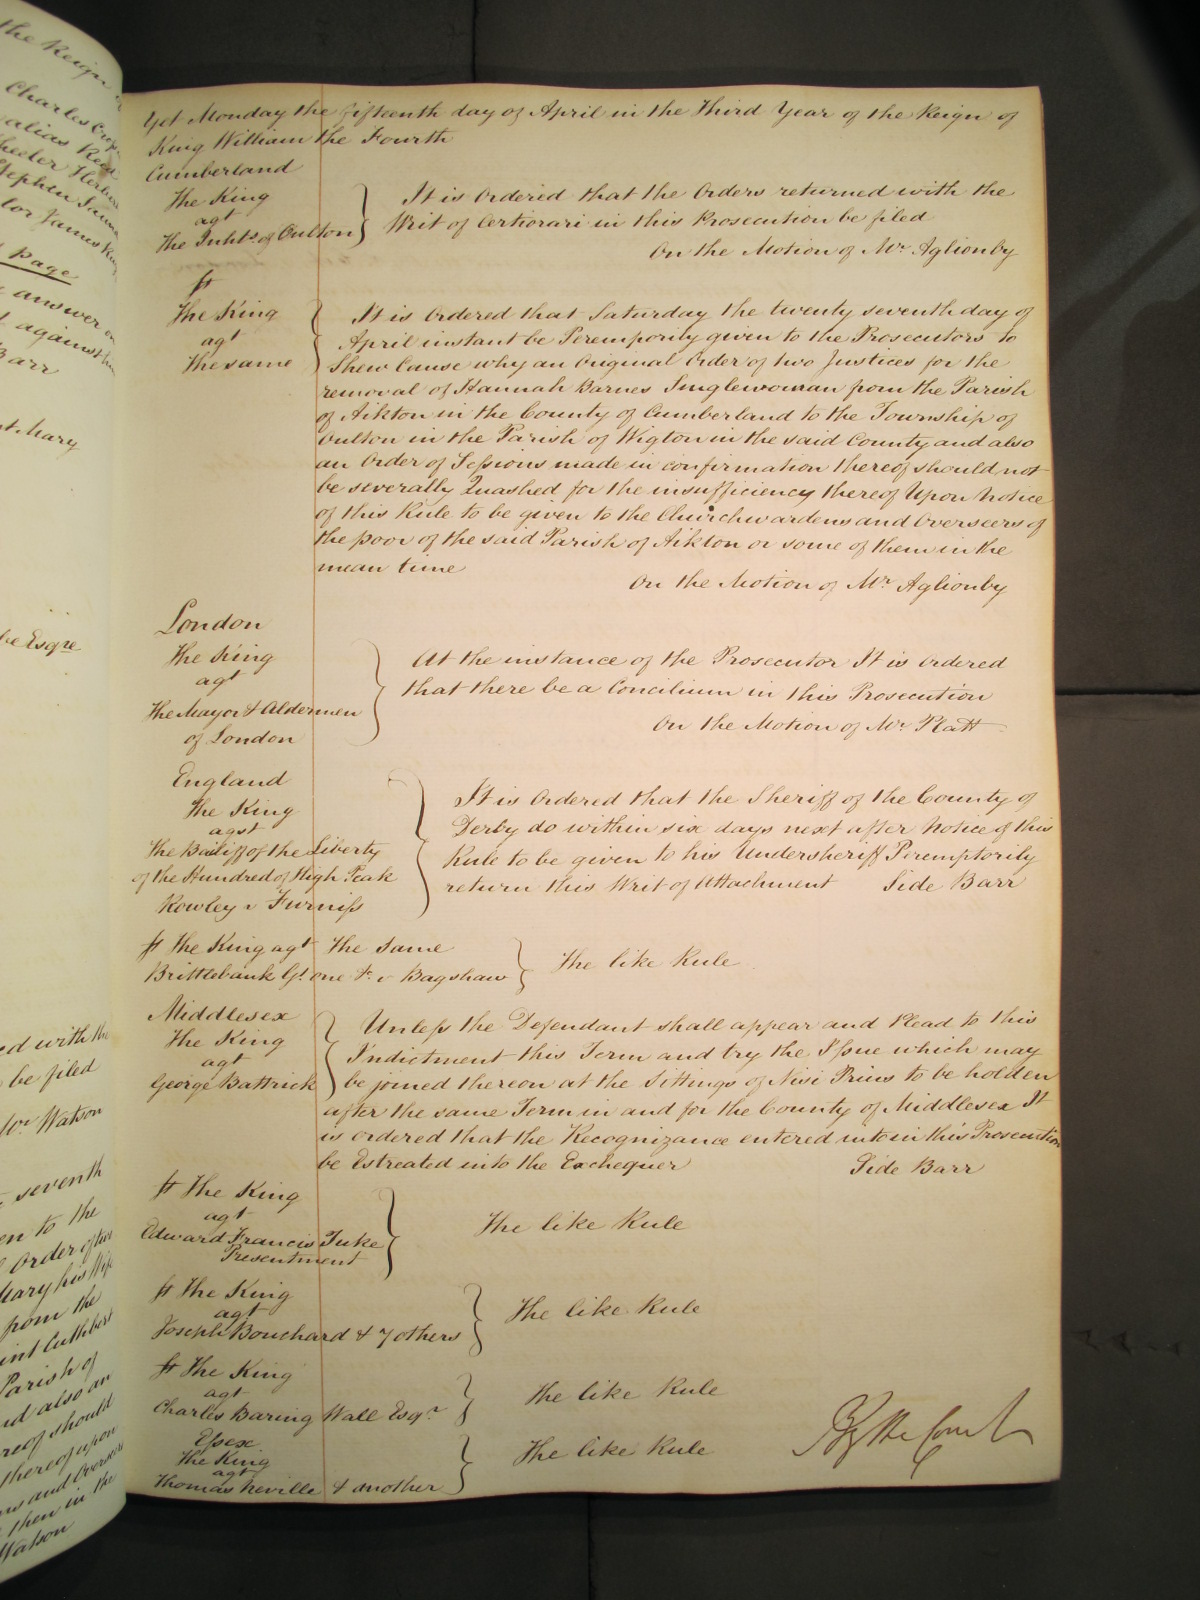 Yet Monday the fifteenth day of April in the Third Year of the Reign of
King William the Fourth
Cumberland
The King
agt
The Inhts. of Oulton
It is Ordered that the Orders returned with the
Writ of Certiorari in this Prosecution be filed
On the Motion of Mr. Aglionby
The King
agt
the same
It is Ordered that Saturday the twenty seventh day of
April instant be Peremporily given to the Prosecutors to
Shew Cause why an Original Order of two Justices for the
removal of Hannah Barnes Singlewoman from the Parish
of Aikton in the County of Cumberland to the Township of
Oulton in the Parish of Wigton in the said County and also
an Order of Sessions made in confirmation thereof should not
be severally Quashed for the insufficiency thereof Upon Notice
of this Rule to be given to the Churchwardens and Overseers of
the poor of the said Parish of Aikton or some of them in the
mean time
On the Motion of Mr. Aglionby
London
The King
agt
The Mayor & Aldermen
of London
At the instance of the Prosecutor It is ordered
that there be a Concilium in this Prosecution
On the Motion of Mr. Platt
England
The King
agst
The Bailiff of the Liberty
of the Hundred of High Peak
Rowley v Furniss
It is Ordered that the Sheriff of the County of
Derby do within six days next after Notice of this
Rule to be given to his Undersheriff Peremptorily
return this Writ of Attachment Side Barr
The King agt The same
Brittlebank Gt. one &c v Bagshaw
The like Rule
Middlesex
The King
agt
George Battrick
Unless the Defendant shall appear and Plead to this
Indictment this Term and try the Issue which may
be joined thereon at the Sittings of Nisi Prius to be holden
after the same Term in and for the County of Middlesex It
is ordered that the Recognizance entered into in this Prosecution
be Estreated into the Exchequer Side Barr
The King
agt
Edward Francis Tuke
Presentment
The like Rule
The King
agt
Joseph Bouchard & 7 others
The like Rule
The King
agt
Charles Baring Wall Esqr.
The like Rule
Essex
The King
agt
Thomas Neville & another
The like Rule
By the Court